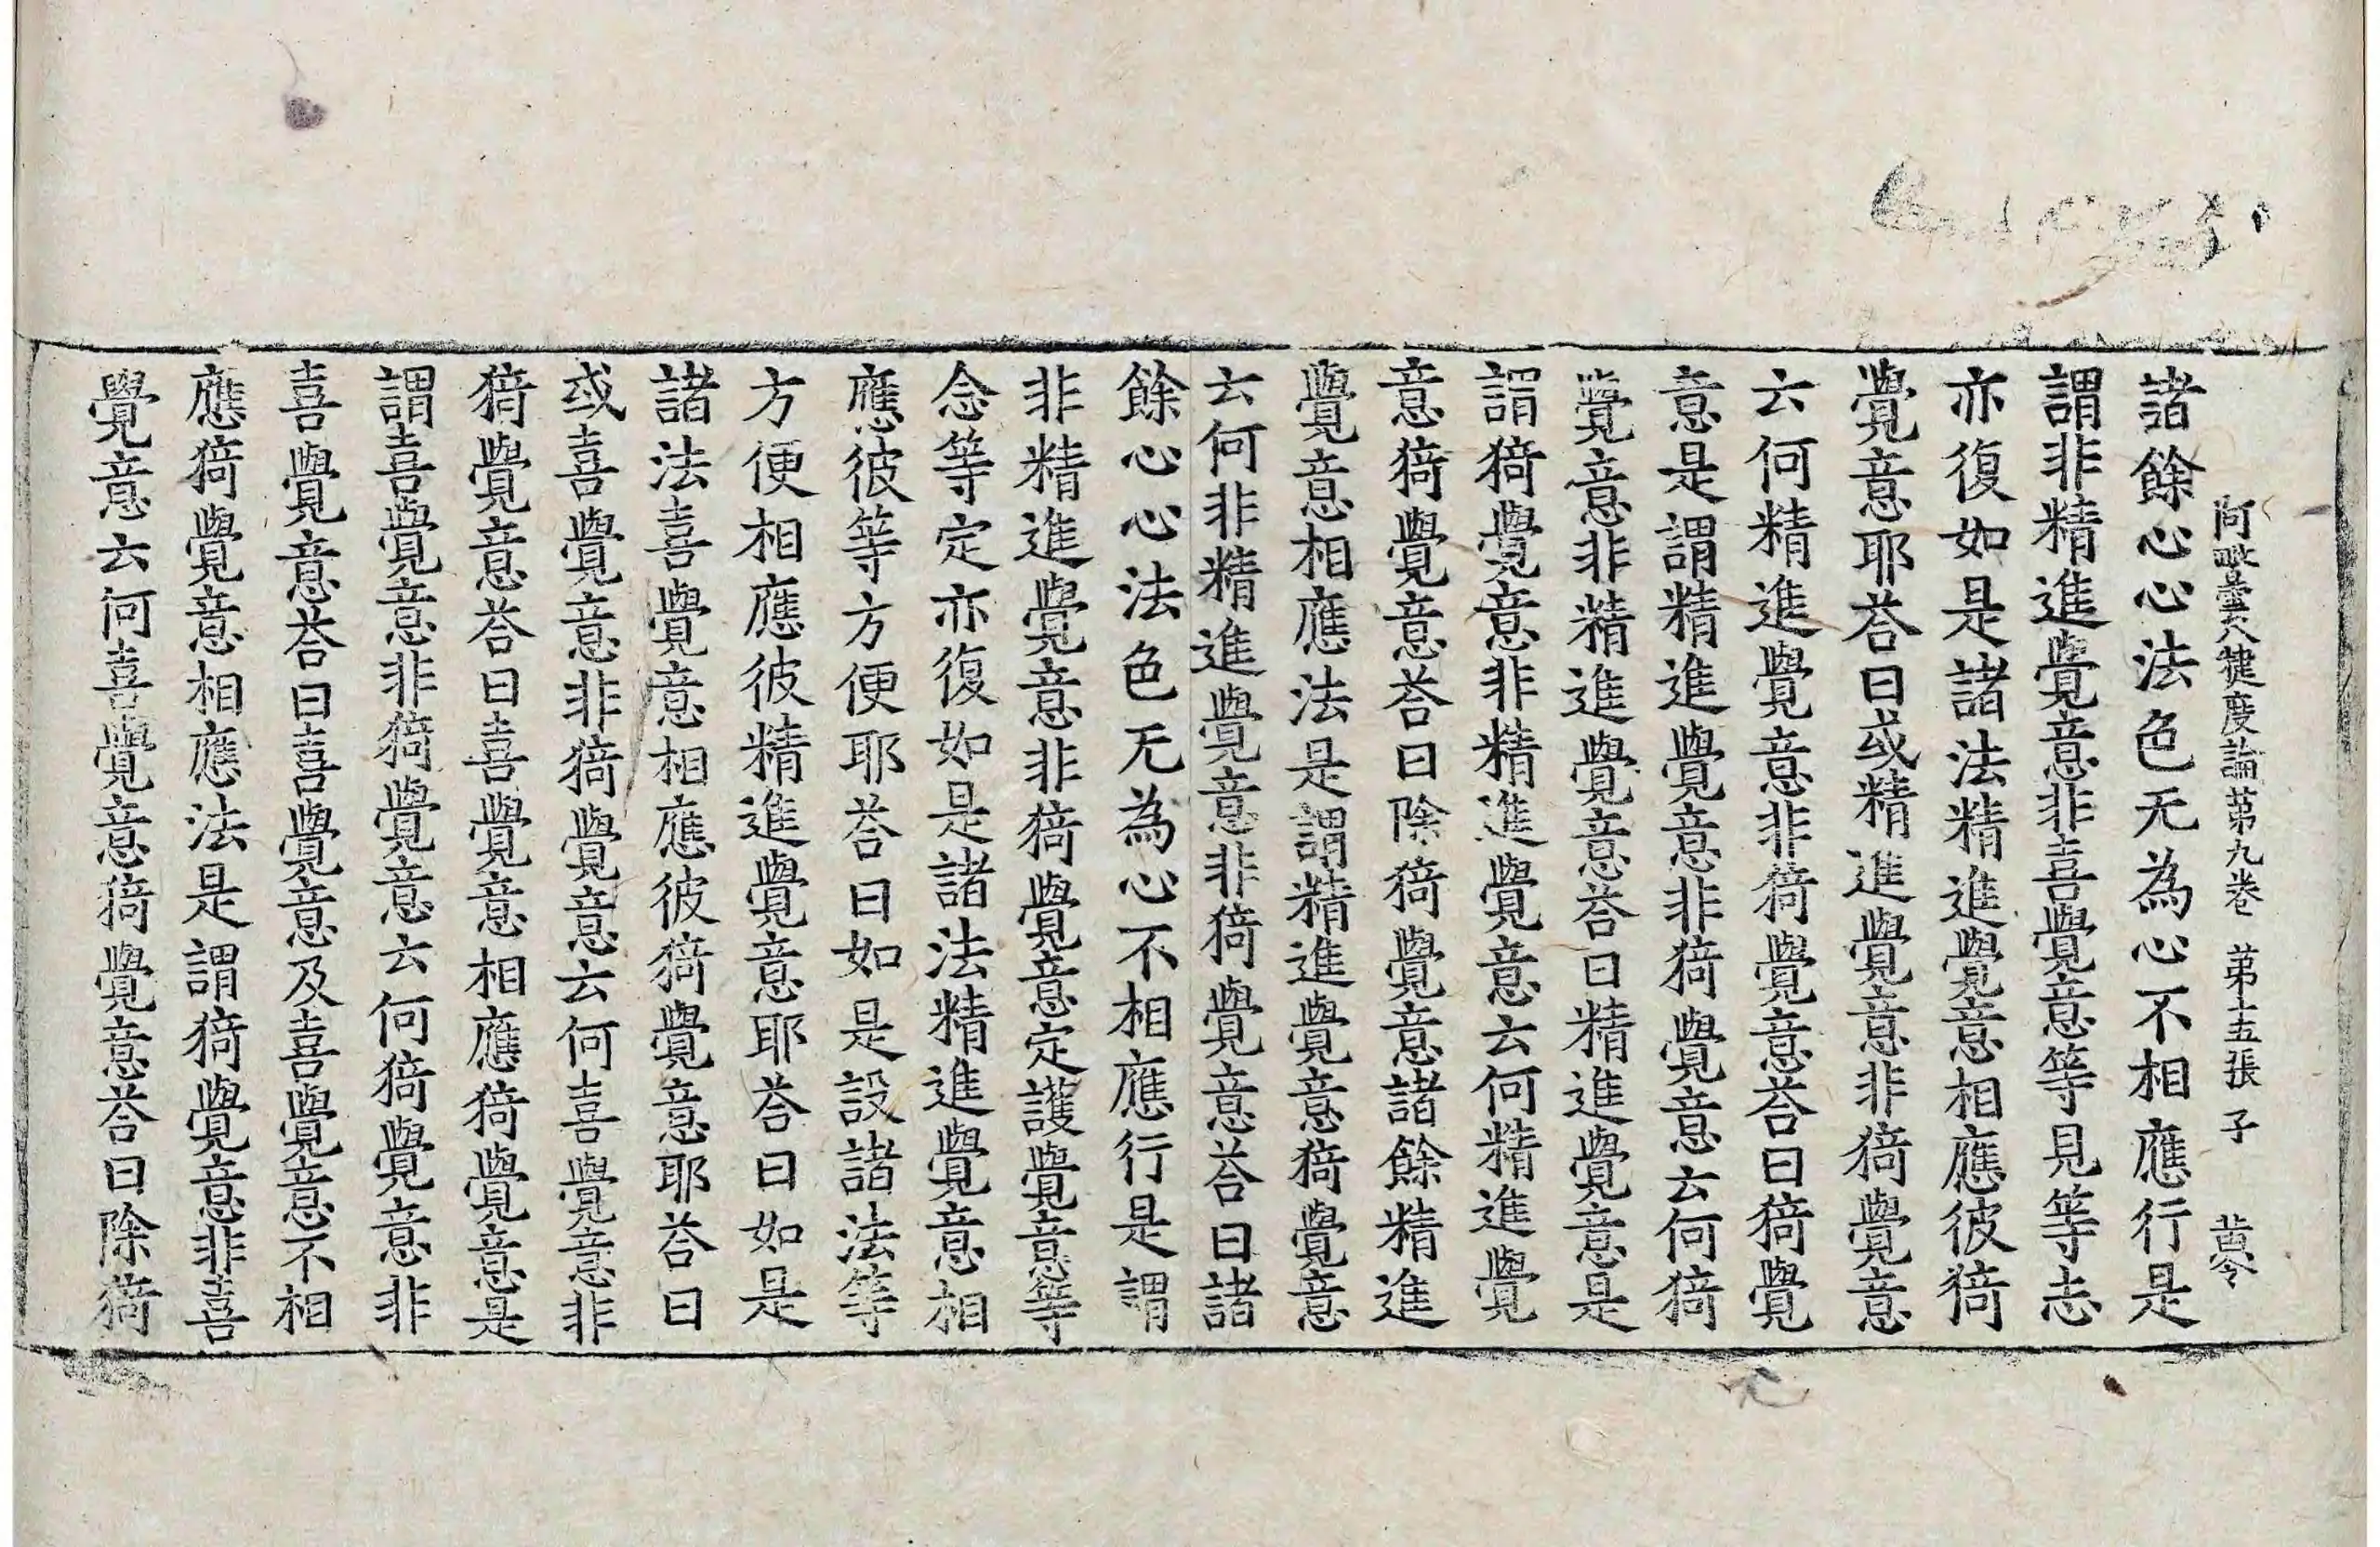 阿毗曇八犍度論第九卷 第十五張 子
諸餘心心法色无為心不相應行是
謂非精進覺意非喜覺意等見等志
亦復如是諸法精進覺意相應彼猗
覺意耶荅曰或精進覺意非猗覺意
云何精進覺意非猗覺意荅曰猗覺
意是謂精進覺意非猗覺意云何猗
覺意非精進覺意荅曰精進覺意是
謂猗覺意非精進覺意云何精進覺
意猗覺意荅曰除猗覺意諸餘精進
覺意相應法是謂精進覺意猗覺意
云何非精進覺意非猗覺意荅曰諸
餘心心法色无為心不相應行是謂
非精進覺意非猗覺意定護覺意等
念等定亦復如是諸法精進覺意相
應彼等方便耶荅曰如是設諸法等
方便相應彼精進覺意耶荅曰如是
諸法喜覺意相應彼猗覺意耶荅曰
或喜覺意非猗覺意云何喜覺意非
猗覺意荅曰喜覺意相應猗覺意是
謂喜覺意非猗覺意云何猗覺意非
喜覺意荅曰喜覺意及喜覺意不相
應猗覺意相應法是謂猗覺意非喜
覺意云何喜覺意猗覺意荅曰除猗